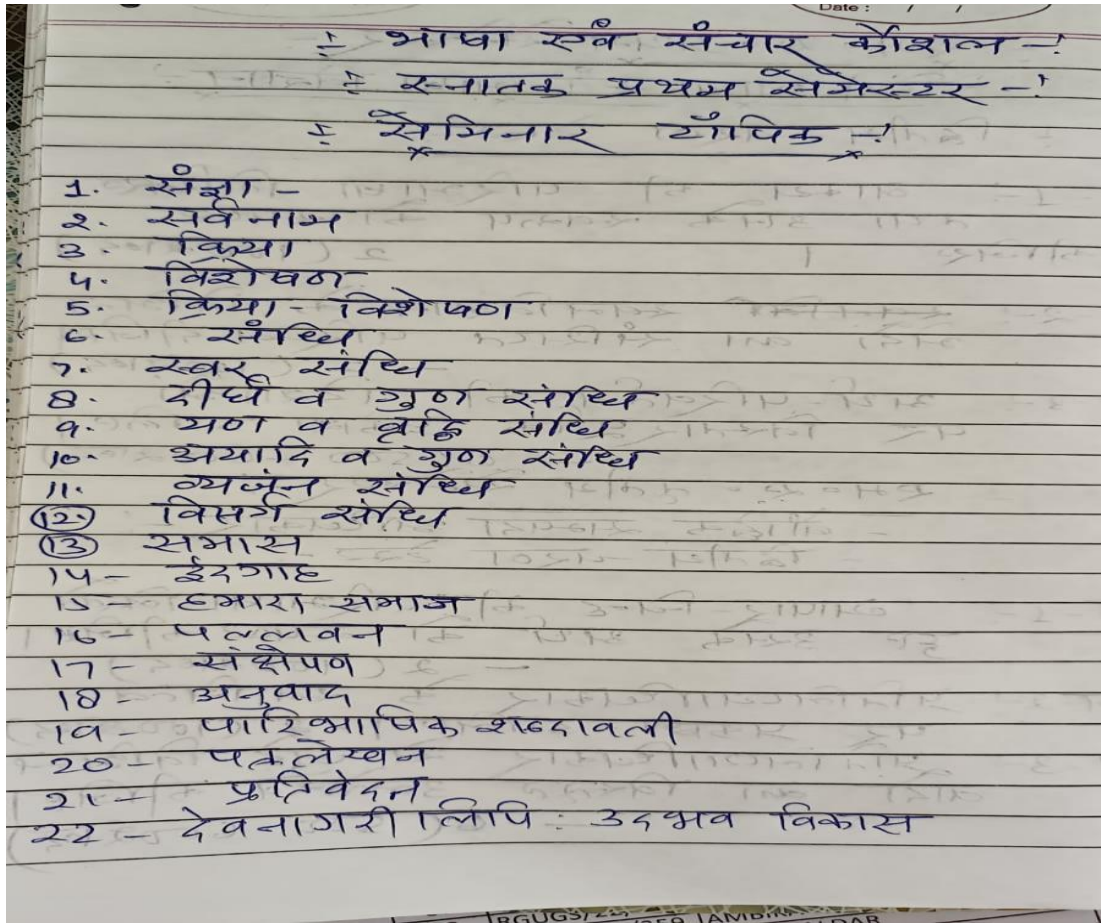 Date : / /
÷ भाषा एवं संचार कौशल -:
÷ स्नातक प्रथम सेमेस्टर -:
÷ सेमिनार टॉपिक -:
1. संज्ञा -
2. सर्वनाम
3. क्रिया
4. विशेषण
5. क्रिया - विशेषण
6. संधि
7. स्वर संधि
8. दीर्घ व गुण संधि
9. यण व वृद्धि संधि
10. अयादि व गुण संधि
11. व्यजंन संधि
12. विसर्ग संधि
13 समास
14 - ईदगाह
15 - हमारा समाज
16 - पल्लवन
17 - संक्षेपण
18 - अनुवाद
19 - पारिभाषिक शब्दावली
20 - पत्रलेखन
21 - प्रतिवेदन
22 - देवनागरी लिपि : उदभव विकास